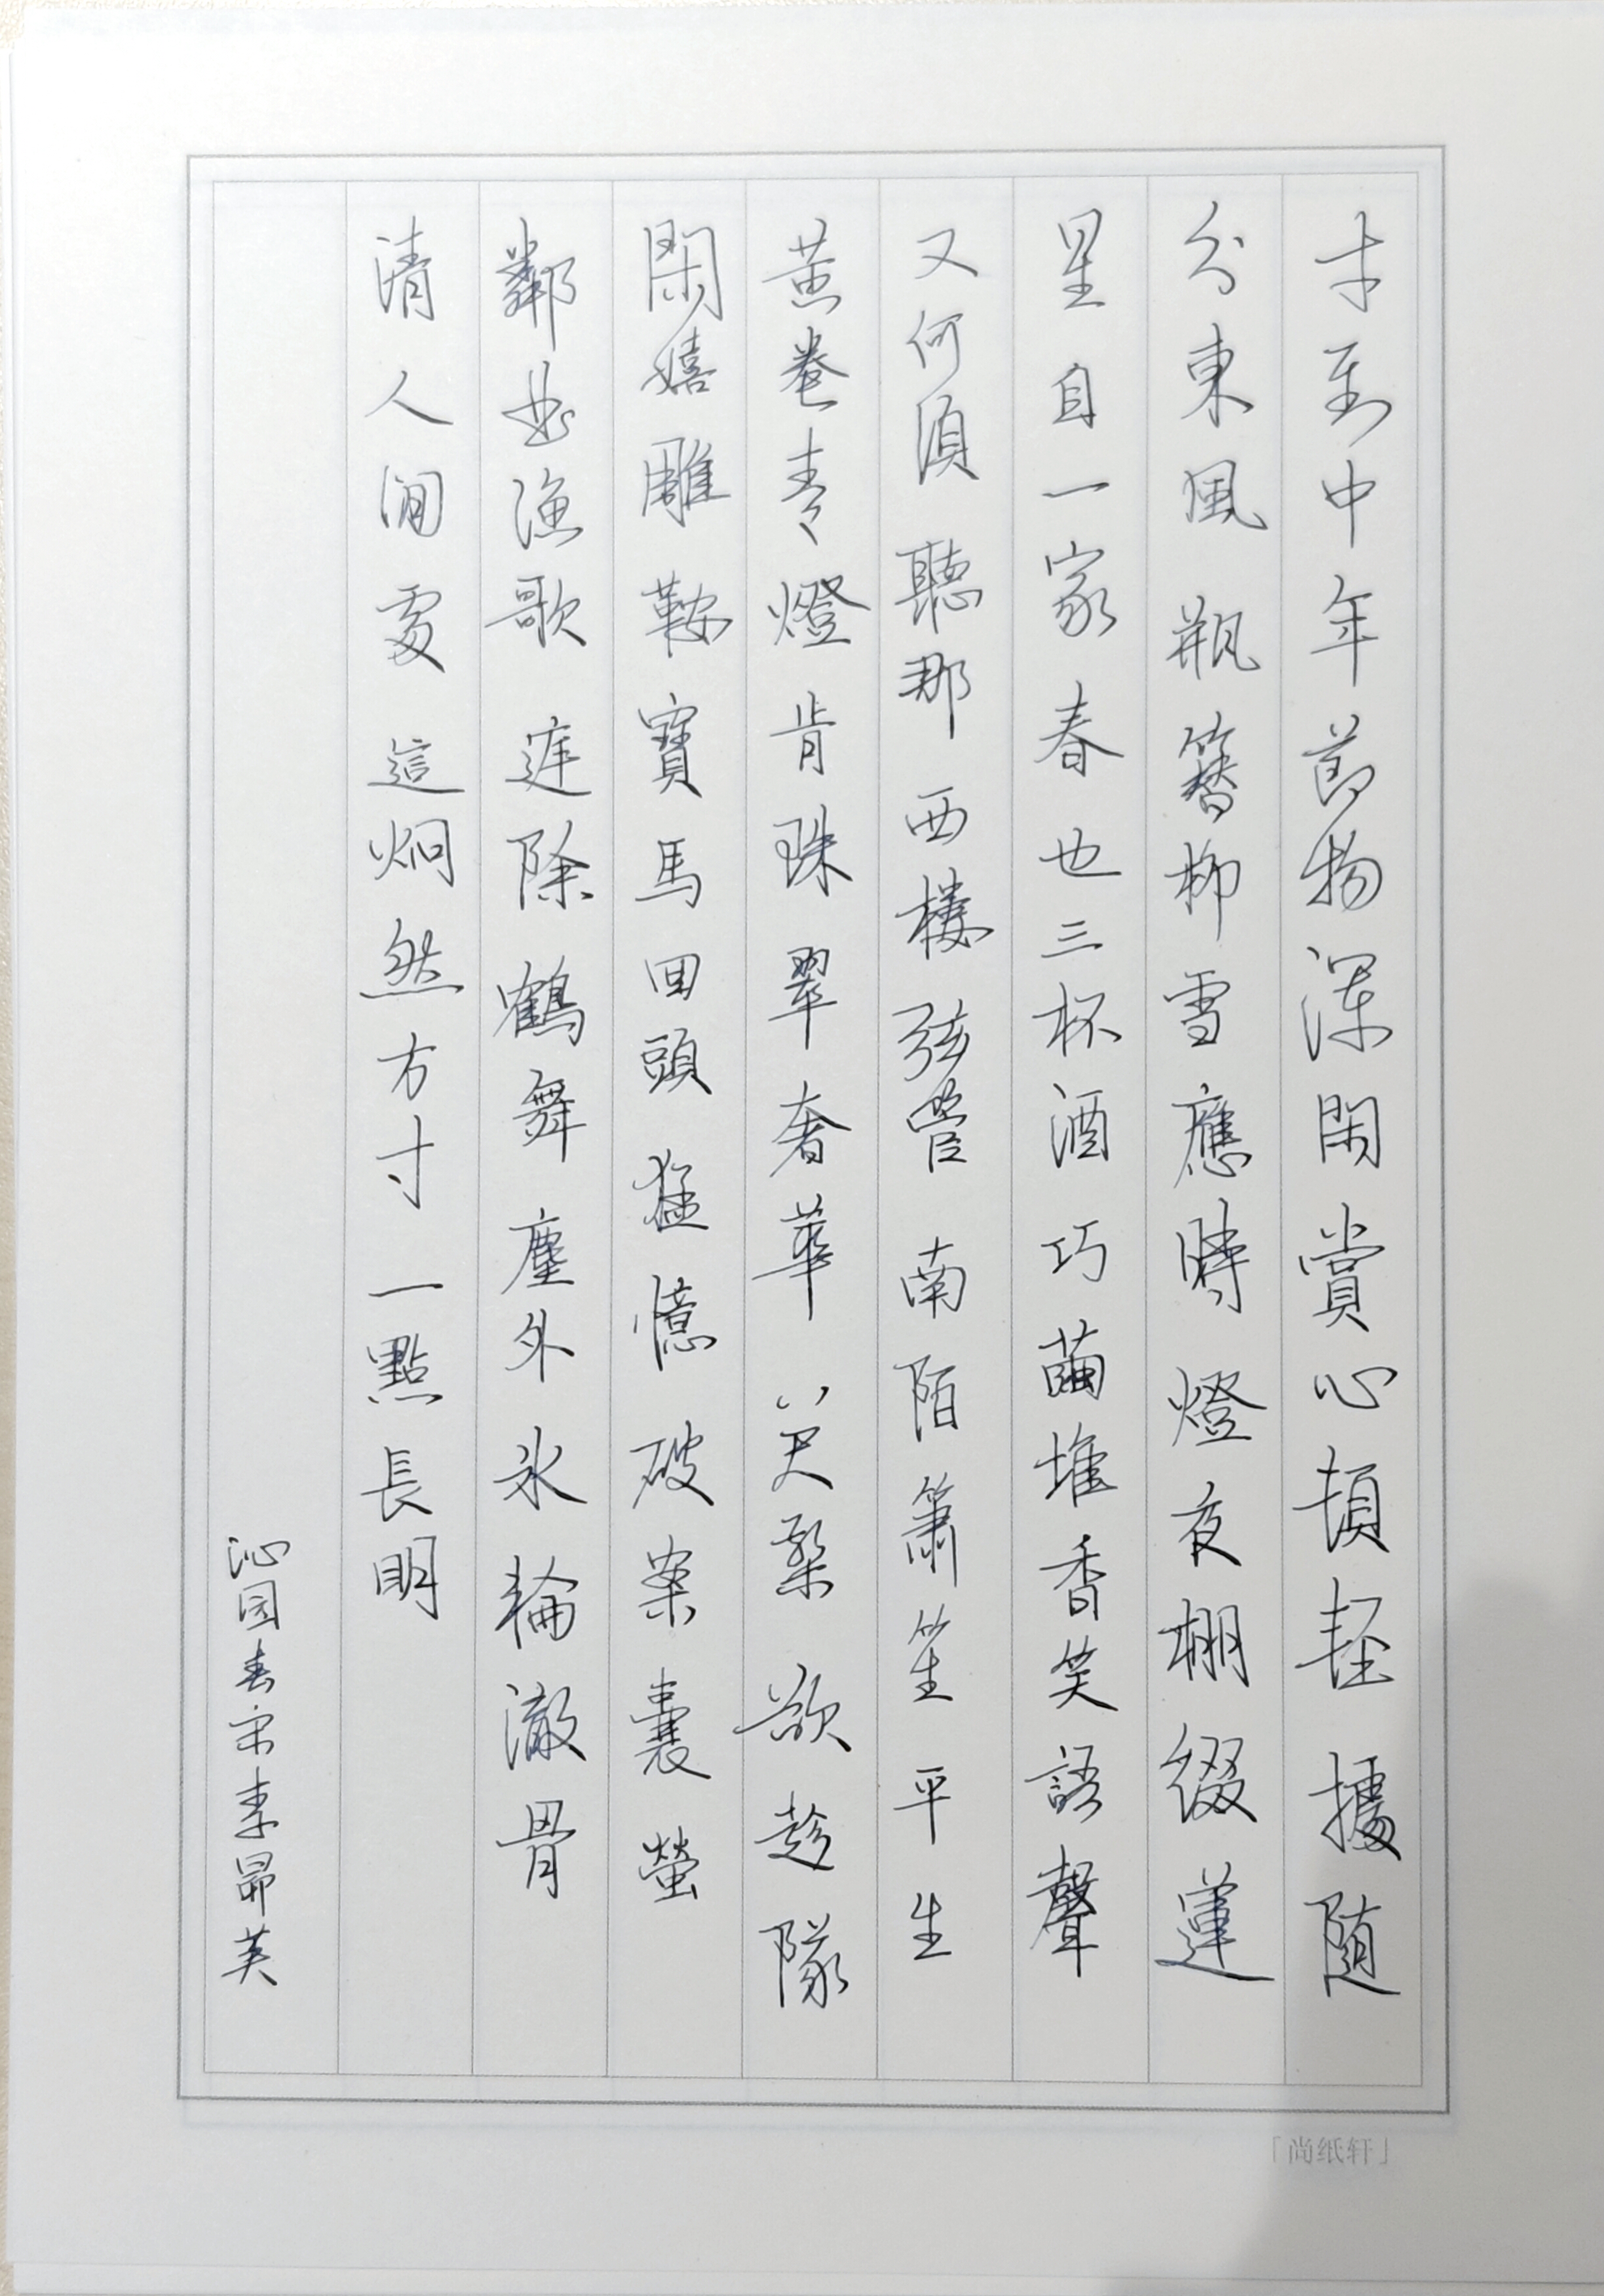 才至中年節物渾閑賞心頓輕據隨
分東風瓶簪柳雪應時燈夜棚綴蓮
星自一家春也三杯酒巧繭堆香笑語聲
又何須聽那西樓弦管南陌簫笙平生
黄卷青燈肯珠翠奢華若槃欲趁隊
閑嬉雕鞍寶馬回頭猛憶破案囊螢
鄰出漁歌庭除鶴舞塵外冰輪澈骨
清人間處這炯然方寸一點長明
沁园春宋李昴英
「尚纸轩」